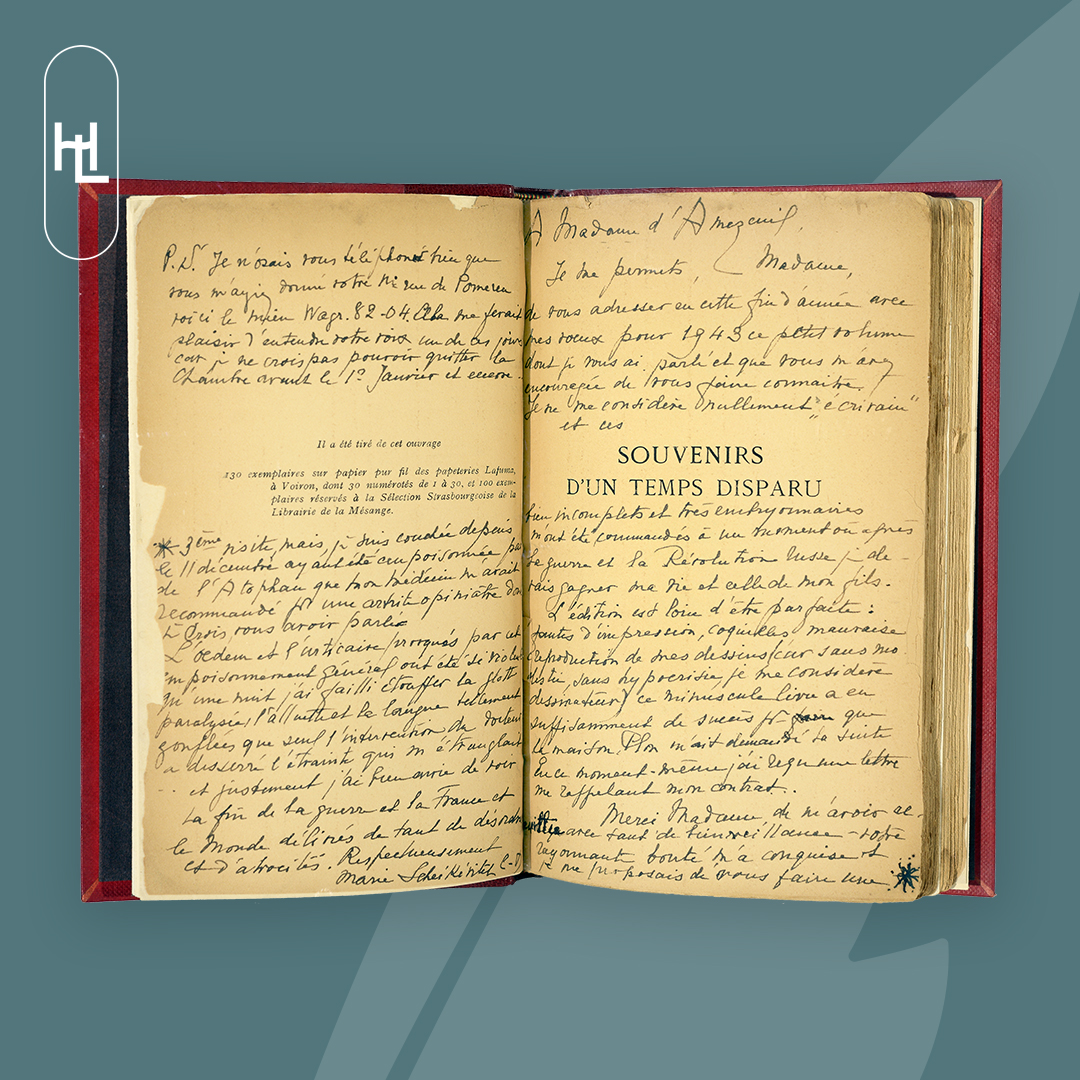 HLL
P.S. Je n'osais vous téléphoner bien que
vous m'ayiez donné votre N: rue de Pomereu
voici le mien Wagr. 82-04. Cela me ferait
plaisir d'entendre votre voix un de ces jours
car je ne crois pas pouvoir quitter la
Chambre avant le 1er Janvier et encore.
Il a été tiré de cet ouvrage
130 exemplaires sur papier pur fil des papeteries Lafuma,
à Voiron, dont 30 numérotés de 1 à 30, et 100 exem-
plaires réservés à la Sélection Strasbourgeoise de la
Librairie de la Mésange.
* 3ème visite, mais, je suis couchée depuis
le 11 décembre ayant été empoisonnée par
de l'Atophan que mon médecin m'avait
recommandé pr une arthrite opiniâtre dont
je crois vous avoir parlé
L'oedem et l'urticaire provoqués par cet
empoisonnement général ont été si violents
qu'une nuit j'ai failli étouffer la glotte
paralysée, l'alluette et la langue tellement
gonflées que seul l'intervention du docteur
a desserré l'étrainte qui m'étranglait
... et justement j'ai bien envie de voir
la fin de la guerre et la France et
le Monde délivrés de tant de désordres
et d'atrocités. Respectueusement
Marie Scheikévitch C-D
A Madame d'Amezeuil,
Je me permets, Madame,
de vous adresser en cette fin d'année avec
mes voeux pour 1943 ce petit volume
dont je vous ai parlé et que vous m'avez
encouragée de vous faire connaitre.
Je ne me considère nullement "écrivain"
et ces
SOUVENIRS
D'UN TEMPS DISPARU
bien incomplets et très embryonnaires
m'ont été commandés à un moment où après
la guerre et la Révolution Russe je de-
vais gagner ma vie et celle de mon fils.
L'édition est loin d'être parfaite:
fautes d'impression, coquilles mauvaise
reproduction de mes dessins (car sans mo
destie, sans hypocrisie, je me considère
dessinateur) ce minuscule livre a eu
suffisamment de succès pr que
la maison Plon m'ait demandé sa suite
En ce moment-même j'ai reçu une lettre
me rappelant mon contrat.
Merci Madame, de m'avoir ac-
cueillie avec tant de bienveillance - votre
rayonnante bonté m'a conquise et
je me proposais de vous faire une *